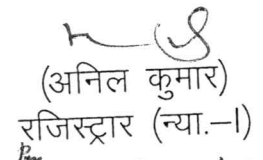 (अनिल कुमार)
रजिस्ट्रार (न्या.–I)